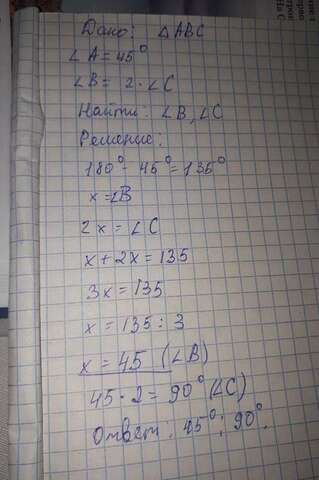 Дано: △ABC
∠A = 45°
∠B = 2·∠C
Найти: ∠B, ∠C
Решение:
180° - 45° = 135°
x = ∠B
2x = ∠C
x + 2x = 135
3x = 135
x = 135 : 3
x = 45 (∠B)
45·2 = 90° (∠C)
Ответ: 45°; 90°.